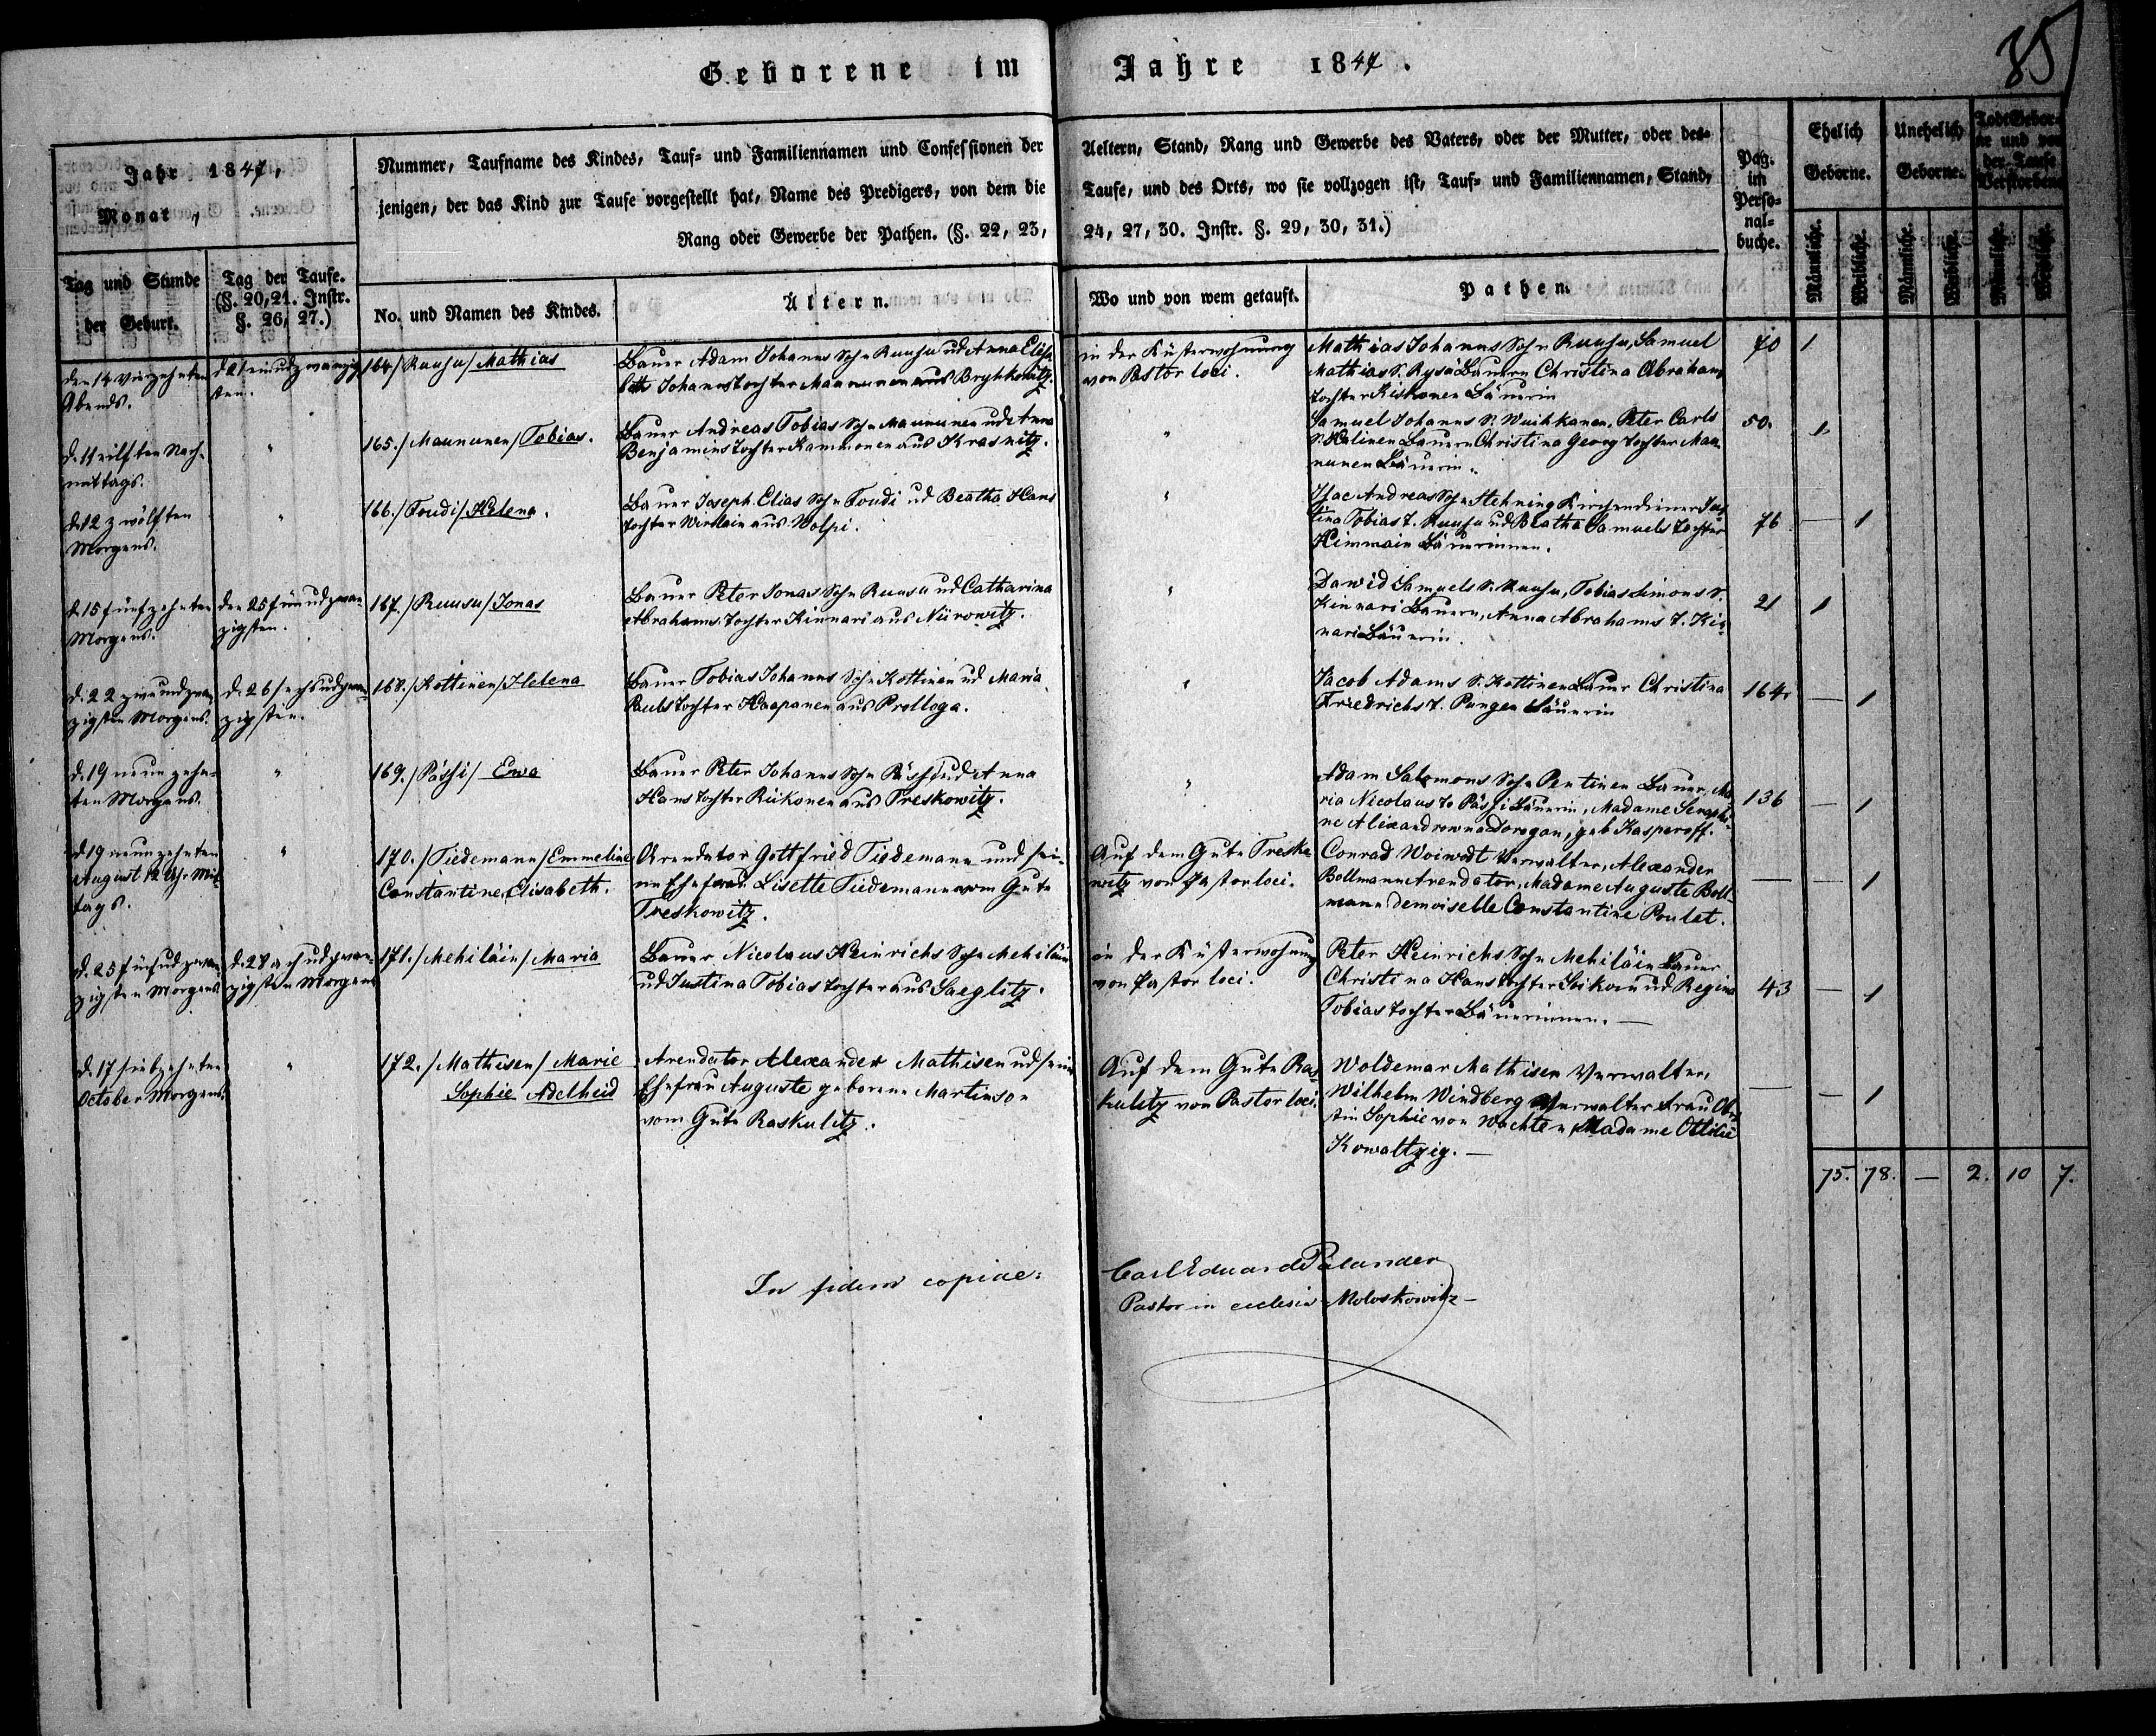 Geborene im Jahre 1847.
85
Jahr 1847,
Monat
Tag und Stunde
der Geburt.
Tag der Taufe.
(§. 20, 21. Instr.
§. 26, 27.)
Nummer, Taufname des Kindes, Tauf- und Familiennamen und Confessionen der
jenigen, der das Kind zur Taufe vorgestellt hat, Name des Predigers, von dem die
Rang oder Gewerbe der Pathen. (§. 22, 23,
No. und Namen des Kindes.
Ältern.
Aeltern, Stand, Rang und Gewerbe des Vaters, oder der Mutter, oder des-
Taufe, und des Orts, wo sie vollzogen ist, Tauf- und Familiennamen, Stand,
24, 27, 30. Instr. §. 29, 30, 31.)
Wo und von wem getauft.
Pathen.
Pag.
im
Perso-
nal-
buche.
Ehelich
Geborne.
Unehelich
Geborne.
Todt Gebor-
ne und vor
der Taufe
Verstorbene
Männliche.
Weibliche.
Männliche.
Weibliche.
Männliche.
Weibliche.
den 14 vierzehnten
Abends.
d. 21 einudzwanzig
sten.
164./Ruusu/Mathias
Bauer Adam Johanns Sohn Ruusu ud Anna Elisa
beth Johannstochter Maununen aus Bryhkowitz.
in der Küsterwohnung
von Pastor loci.
Mathias Johanns Sohn Ruusu, Samuel
Mathias S. Rysä Bauern Christina Abrahams
tochter Kiskonen Bäuerin
70 1
d. 11 eilften Nach-
mittags.
"
165./Maununen/Tobias.
Bauer Andreas Tobias Sohn Maununen ud Anna
Benjaminstochter Kammonen aus Krasnitz.
"
Samuel Johanns S. Wuihkanen, Peter Carls
S. Halinen Bauern Christina Georg tochter Mau-
nunen Bäuerin.
50. 1
d. 12 zwölften
Morgens.
"
166./Toudi/Helena.
Bauer Joseph Elias Sohn Toudi ud Beatha Hans
tochter Wirolain aus Wolpi.
"
Isac Andreas Sohn Hehning Kirchendiener Jus
tina Tobias T. Ruusu ud Beatha Samuels tochter
Himmain Bäuerinnen.
76 — 1
d. 15 fünfzehnten
Morgens.
den 25 fünudzwan
zigsten.
167./Ruusu/Jonas
Bauer Peter Jonas Sohn Ruusu ud Catharina
Abrahams tochter Kinnari aus Nürowitz.
"
Dawid Samuels S. Ruusu, Tobias Simons S.
Kinnari Bauern, Anna Abrahams T. Kin-
nari Bäuerin.
21 1
d. 22 zweiundzwan
zigsten Morgens.
d. 26 sechsudzwan
zigsten.
168./Kottinen/Helena
Bauer Tobias Johanns Sohn Kottinen ud Maria
Paulstochter Haapanen aus Prolloga.
"
Jacob Adams S. Kottinen Bauer Christina
Friedrichs T. Pungen Bäuerin
164. — 1
d. 19 neunzehn-
ten Morgens.
"
169./Pässi/ Ewa
Bauer Peter Johanns Sohn Pässi ud Anna
Hanstochter Riikonen aus Treskowitz.
"
Adam Salomons Sohn Pentinen Bauer, Ma
ria Nicolaus T. Pässi Bäuerin, Madame Seraphi-
ne Alexandrowna Dorogan, geb Kasperoff.
136 — 1
d. 19 neunzehnten
August 12 Uhr Mit
tags.
"
170./Tiedemann/Emmeline
Constantine Elisabeth.
Arrendator Gottfried Tiedemann und sei-
ne Ehefrau Lisette Tiedemann vom Gute
Treskowitz.
Auf dem Gute Tresko
witz von Pastor loci.
Conrad Woiwodt Verwalter, Alexander
Bollmann Arendator, Madame Auguste Boll-
mann Demoiselle Constantine Poulet.
— — 1
d. 25 fünfudzwan-
zigsten Morgens
d. 28 achudzwan-
zigsten Morgens
171./Mehiläin/Maria
Bauer Nicolaus Heinrichs Sohn Mehiläin
ud Justina Tobias tochter aus Saeglitz.
in der Küsterwohnung
von Pastor loci.
Peter Heinrichs Sohn Mehiläin Bauer
Christina Hanstochter Loikain ud Regina
Tobias tochter Bäuerinnen. —
43 — 1
d. 17 siebzehnten
October Morgens.
"
172./Mathisen/Marie
Sophie Adelheid
Arendator Alexander Mathisen ud seine
Ehefrau Auguste geborene Martinson
vom Gute Raskulitz.
Auf dem Gute Ras-
kulitz von Pastor loci.
Woldemar Mathisen Verwalter,
Wilhelm Windberg Verwalter Frau
Sophie von Wachten, Madame Ottilie
Kowaltzig. —
— — 1
75. 78. — 2. 10 7.
In fidem copiae:
Carl Eduard Palander
Pastor in ecclesia Moloskowitz —